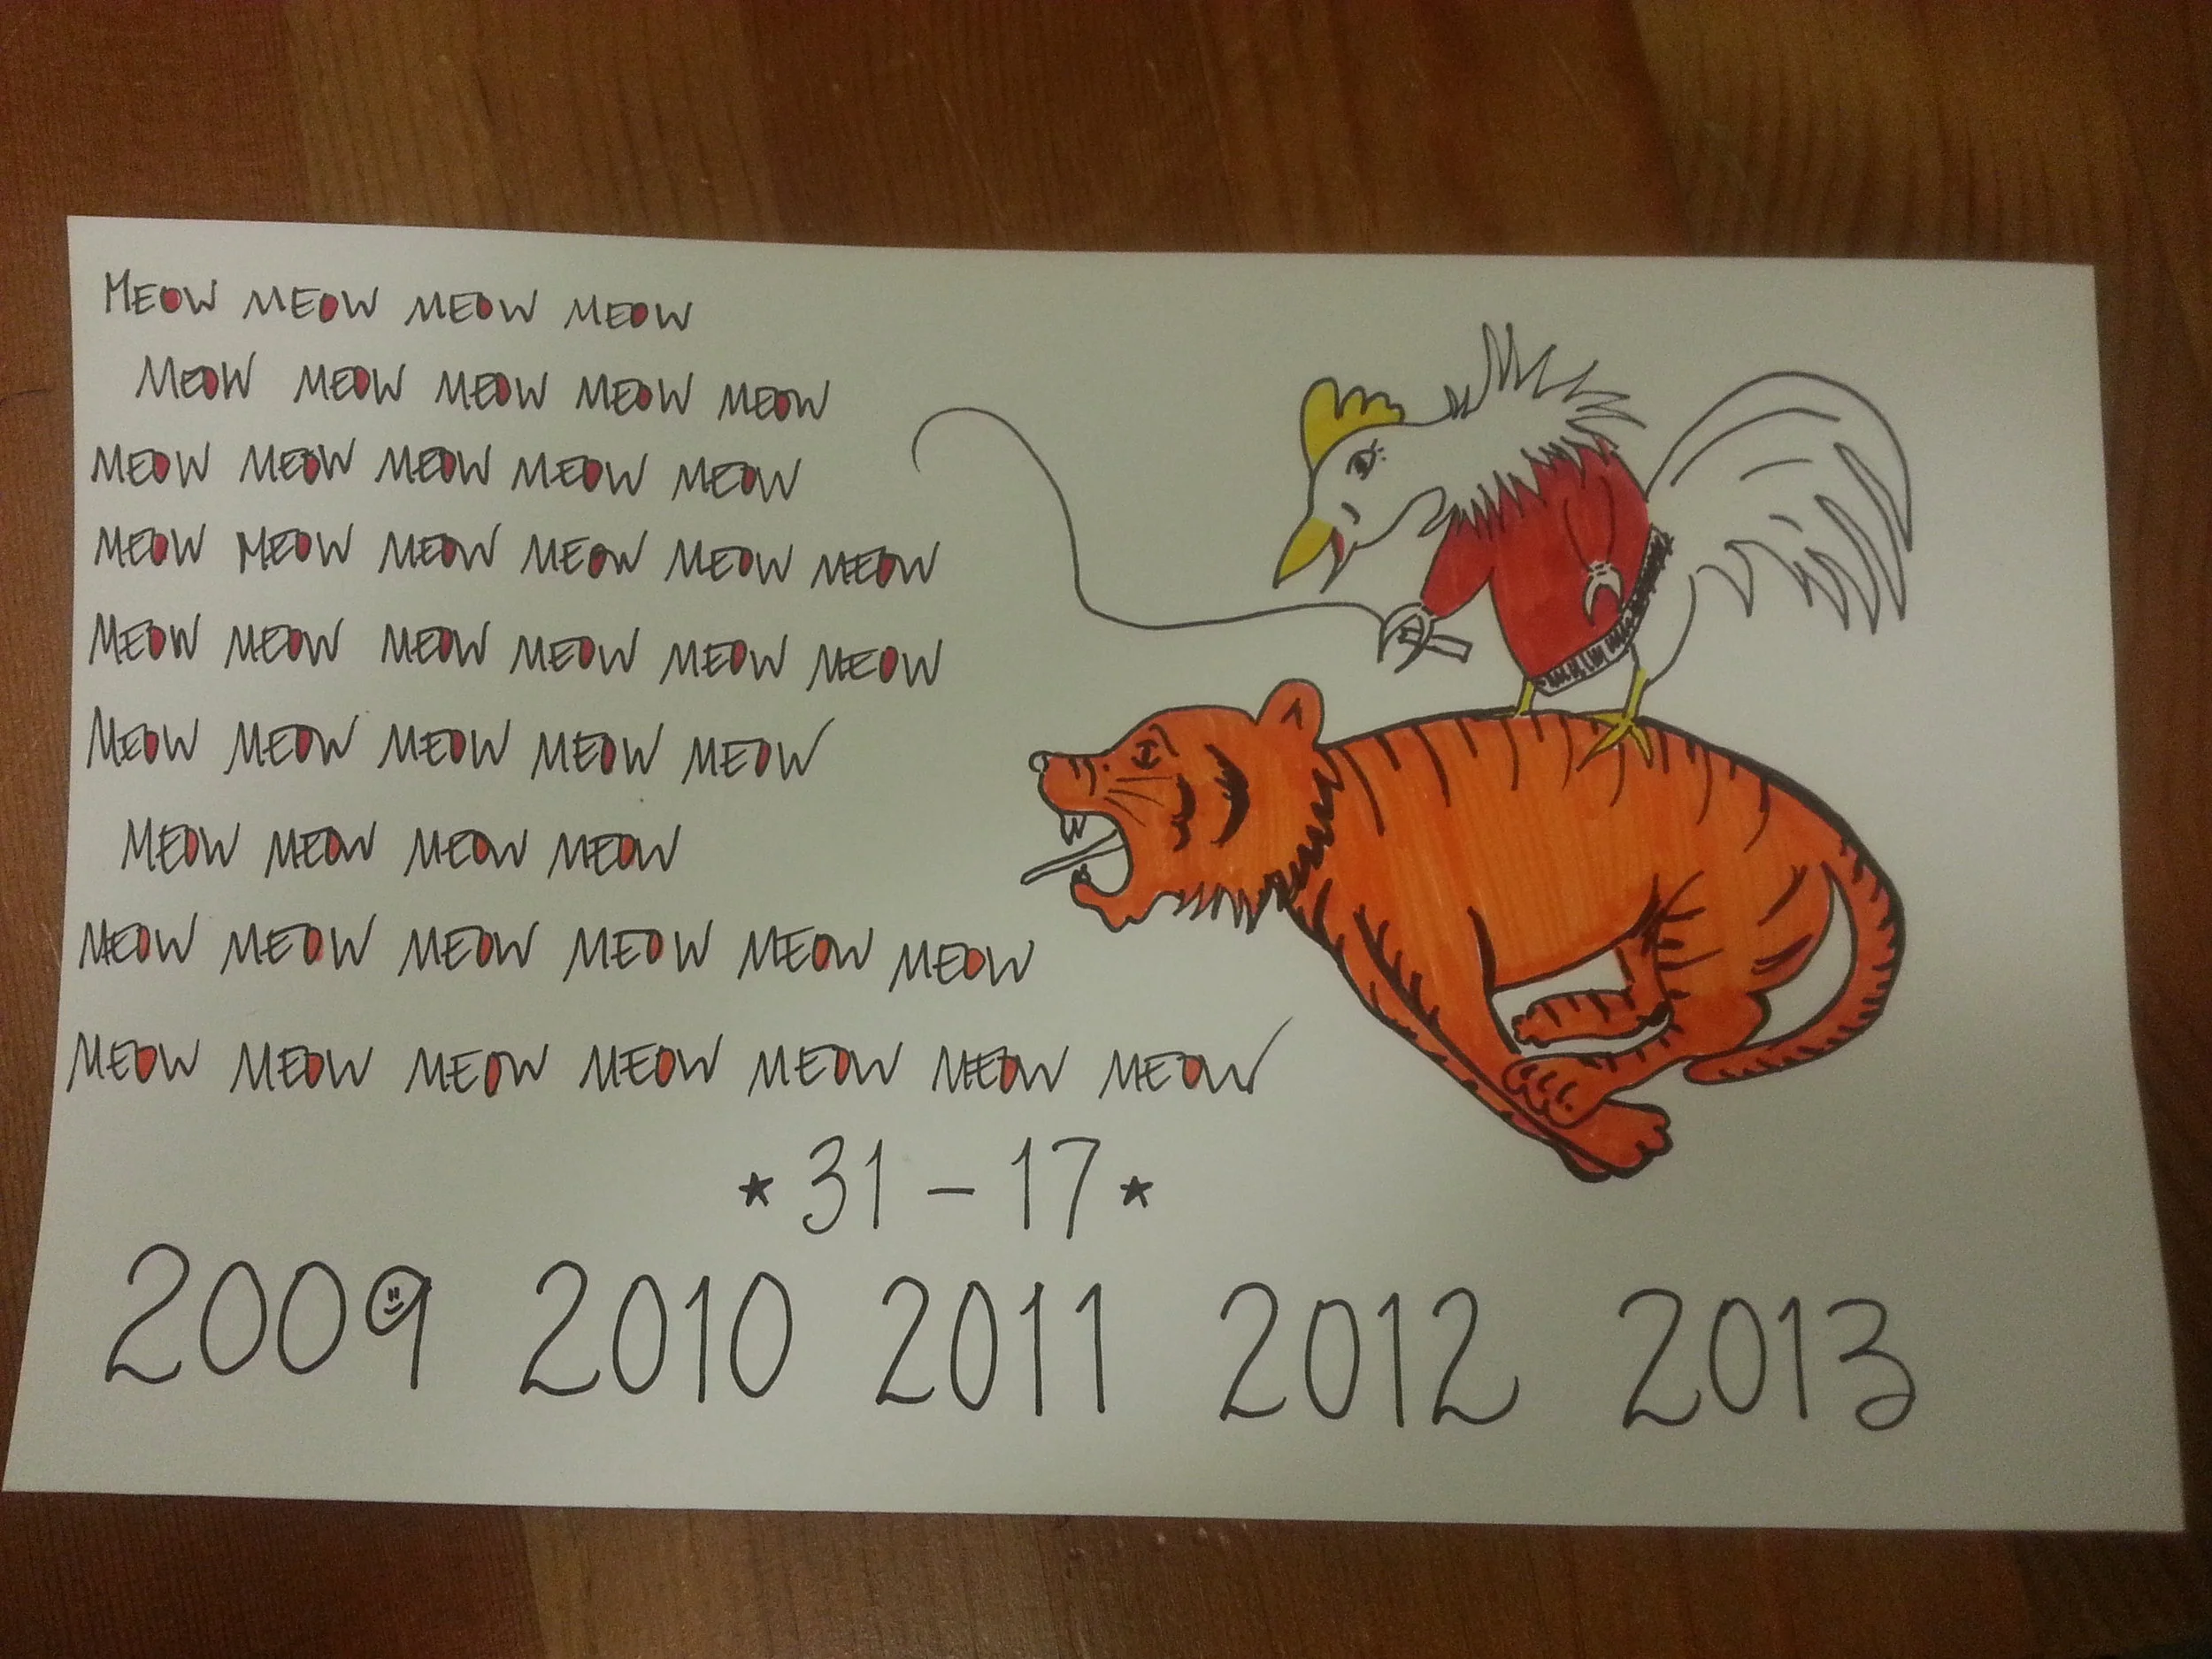 MEOW MEOW MEOW MEOW
MEOW MEOW MEOW MEOW MEOW
MEOW MEOW MEOW MEOW MEOW
MEOW MEOW MEOW MEOW MEOW MEOW
MEOW MEOW MEOW MEOW MEOW MEOW
MEOW MEOW MEOW MEOW MEOW
MEOW MEOW MEOW MEOW
MEOW MEOW MEOW MEOW MEOW MEOW
MEOW MEOW MEOW MEOW MEOW MEOW MEOW
★ 31 - 17 ★
2009 2010 2011 2012 2013